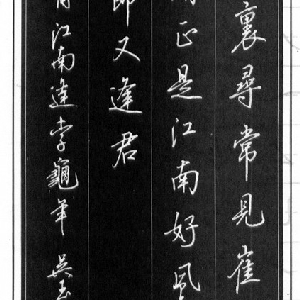 裏尋常見崔
正是江南好風
又逢君
江南逢李龜年 吳玉